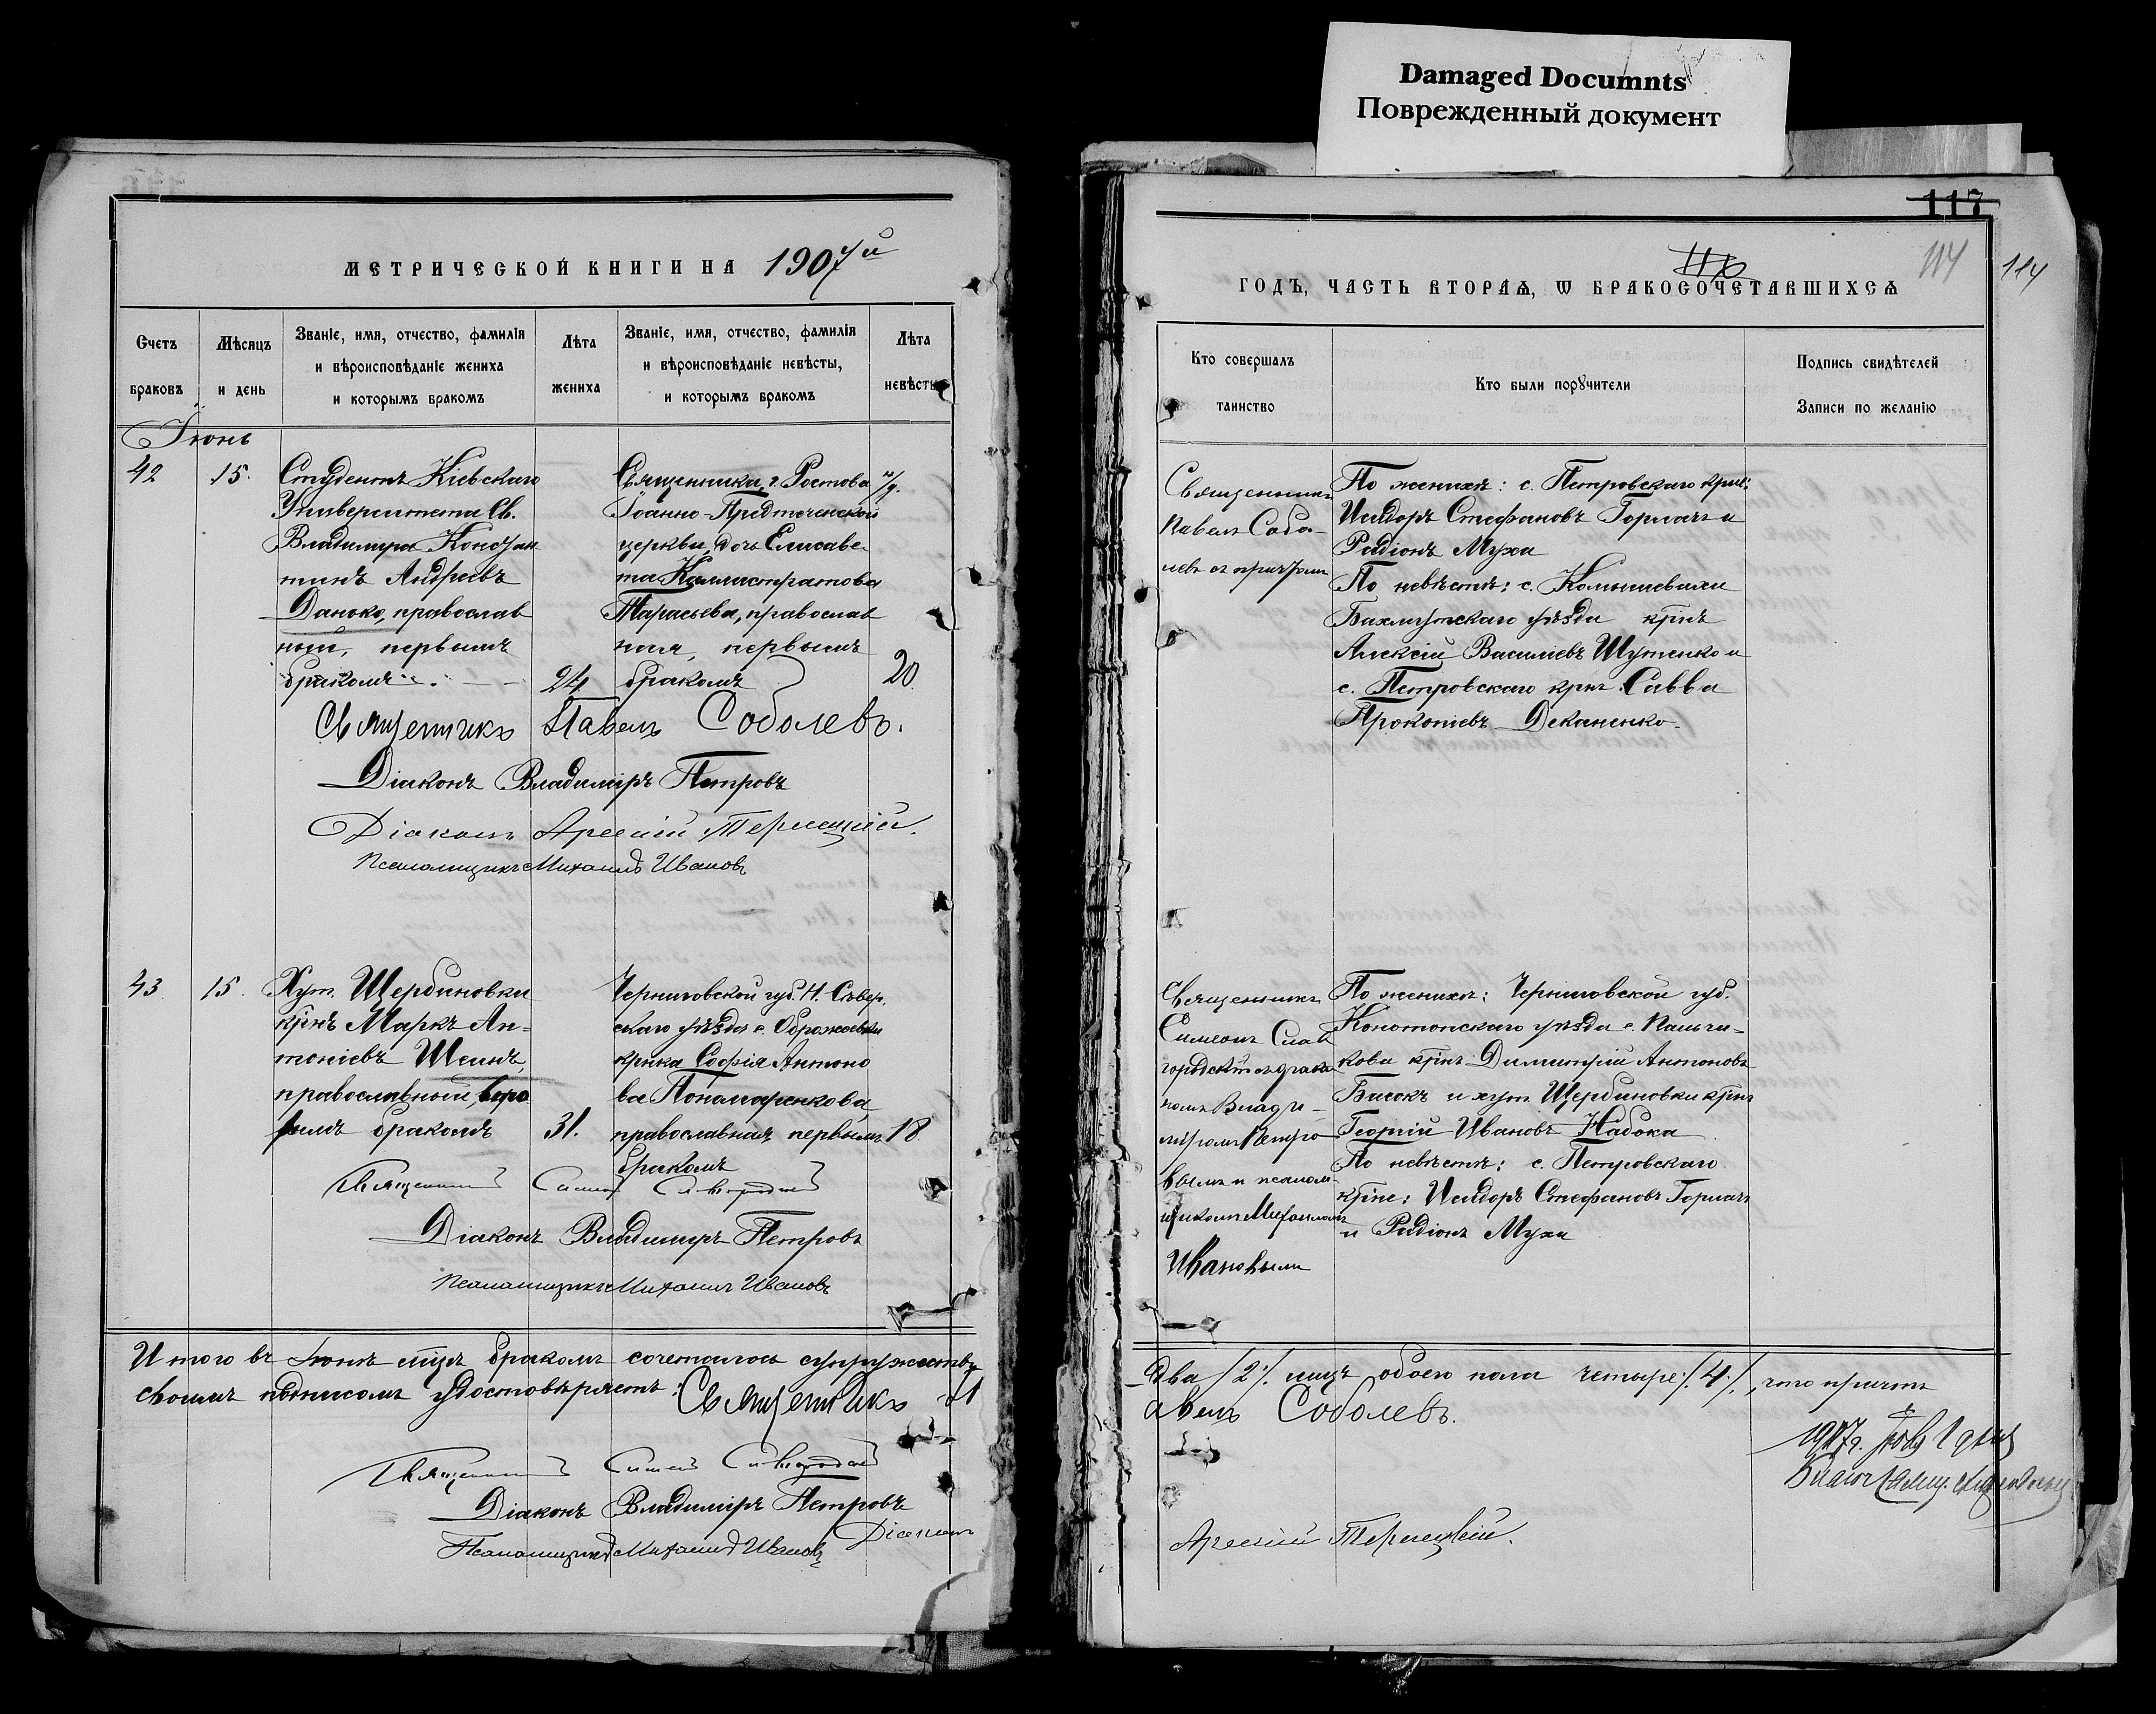 Damaged Documnts
Поврежденный документ
МЕТРИЧЕСКОЙ КНИГИ НА 1907й
Счетъ браковъ
Мѣсяцъ и день
Званіе, имя, отчество, фамилія
и вѣроисповѣданіе жениха
и которымъ бракомъ
Лѣта жениха
Званіе, имя, отчество, фамилія
и вѣроисповѣданіе невѣсты,
и которымъ бракомъ
Лѣта невѣсты
Іюнь
42
15.
Студентъ Кіевскаго
Университета Св.
Владиміра Констан
тинъ Андреевъ
Данько, православ
ный, первымъ
бракомъ
24
Священника, г. Ростова н/Д.
Іоанно-Предтеченской
церкви, дочь Елисаве-
та Каллистратова
Тарасьева, православ
ная, первымъ
бракомъ
20
Священникъ Павелъ Соболевъ.
Діаконъ Владиміръ Петровъ
Діаконъ Арсеній
Псаломщикъ Михаилъ Ивановъ
43
15.
Хут. Щербиновки
крнъ Маркъ Ан-
тоніевъ Шеинъ,
православный, вто
рымъ бракомъ
31.
Черниговской губ. Н.-Сѣвер.
скаго уѣзда с.
крнка Софія Антоно
ва Пономаренкова
православная, первымъ
бракомъ
18
Священникъ
Діаконъ Владиміръ Петровъ
Псаломщикъ Михаилъ Ивановъ
Итого въ Іюнѣ мцѣ бракомъ сочеталось супружествъ
своимъ подписомъ удостовѣряетъ: Священникъ П
Священникъ
Діаконъ Владиміръ Петровъ
Діаконъ
Псаломщикъ Михаилъ Ивановъ
117
114
114
ГОДЪ, ЧАСТЬ ВТОРАѦ, Ѡ БРАКОСОЧЕТАВШИХСѦ
Кто совершалъ таинство
Кто были порꙋчители
Подпись свидѣтелей
Записи по желанію
Священникъ
Павелъ Собо-
левъ съ причтомъ
По женихѣ: с. Петровскаго крне:
Исидоръ Стефановъ Горлачъ и
Родіонъ Муха
По невѣстѣ: с. Комышевахи
Бахмутскаго уѣзда крнъ
Алексій Василіевъ Шутенко и
с. Петровскаго крнъ Савва
Прокопіевъ Деканенко.
Священникъ
Симеонъ Слав
городскій съ діако
номъ Влади-
міромъ Петро
вымъ и псалом
щикомъ Михаиломъ
Ивановымъ
По женихѣ: Черниговской губ.
Конотопскаго уѣзда с. Пальчи-
кова крнъ Димитрій Антоновъ
Бисокъ и хут. Щербиновки крнъ
Георгій Ивановъ Набока
По невѣстѣ: с. Петровскаго
крне: Исидоръ Стефановъ Горлачъ
и Родіонъ Муха
Два /2/. лицъ обоего пола четыре /4/, что причтъ
авелъ Соболевъ.
Арсеній